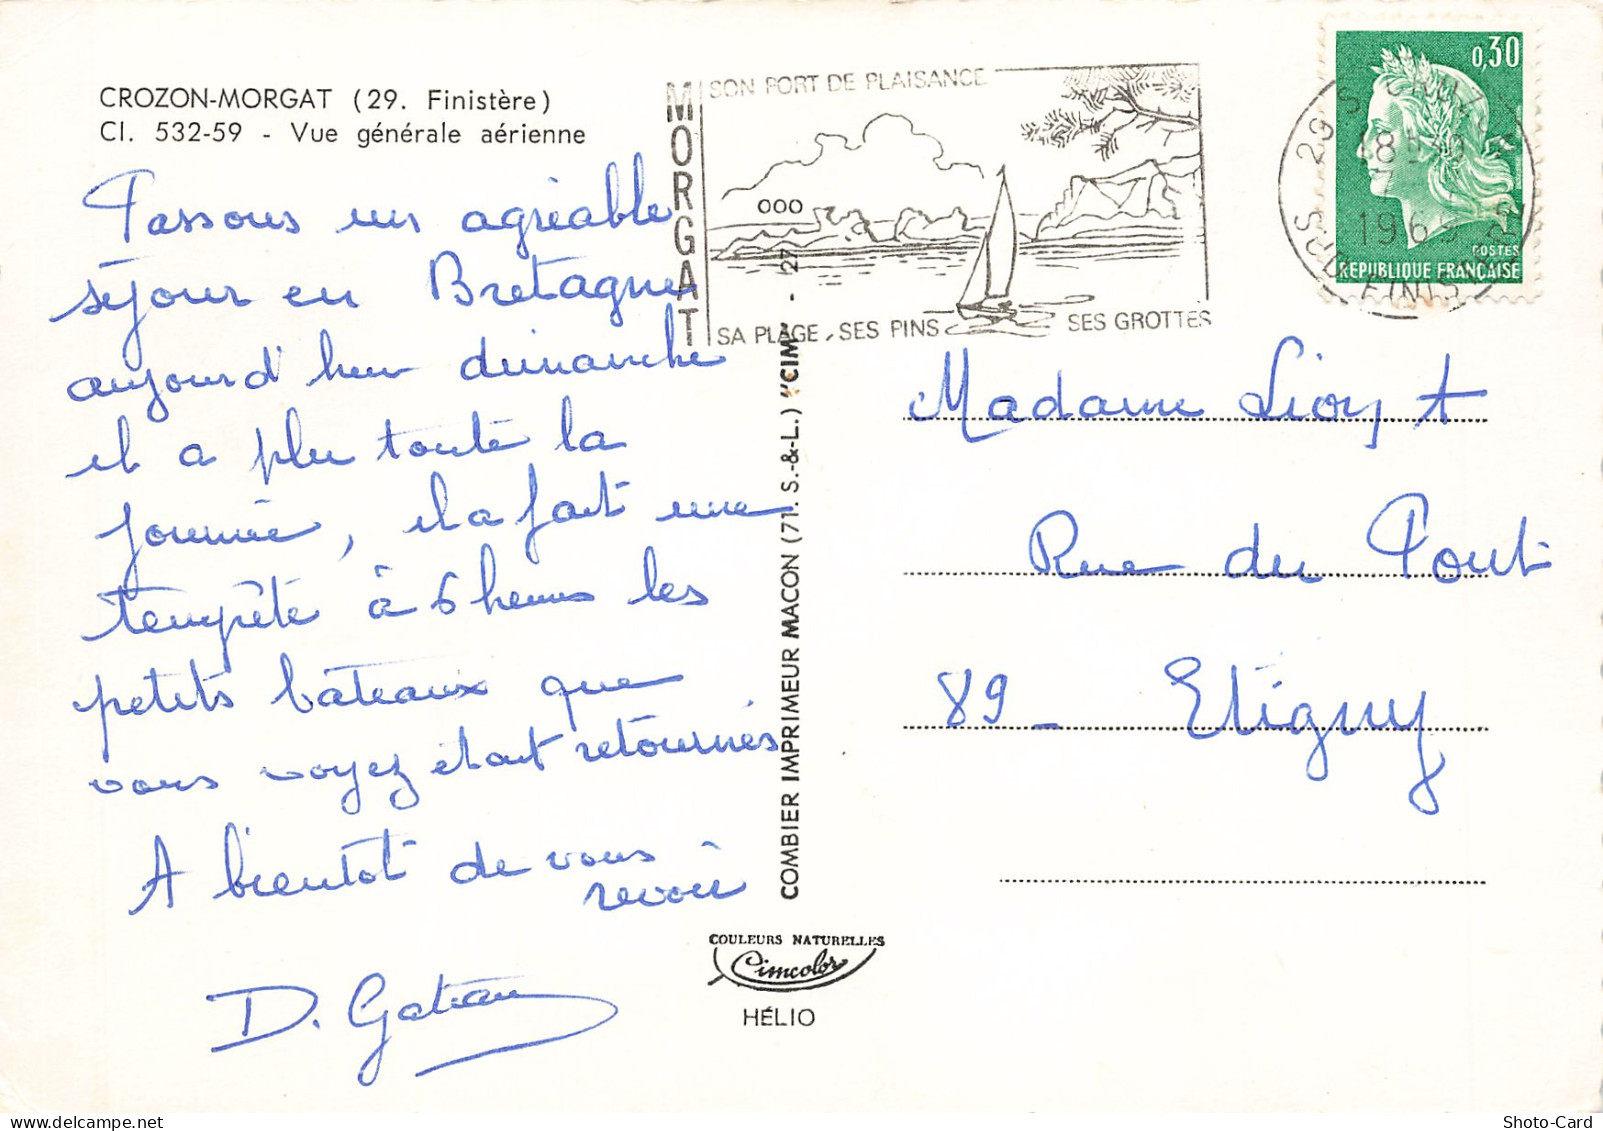 CROZON-MORGAT (29. Finistère)
Cl. 532-59 - Vue générale aérienne
Passons un agréable
séjour en Bretagne
aujourd'hui dimanche
il a plu toute la
journée, il a fait une
tempête à 6 heures les
petits bateaux que
vous voyez étant retournés
A bientôt de vous
revoir
D. Gateau
MORGAT
SON PORT DE PLAISANCE
SA PLAGE, SES PINS
SES GROTTES
COMBIER IMPRIMEUR MACON (71. S.-&-L.) "CIM" - 27
COULEURS NATURELLES
Cimcolor
HÉLIO
0,30
POSTES
REPUBLIQUE FRANÇAISE
29 S
18H30
1969
FINIST
Madame A
Rue du Pont
89 - Etigny
Shoto-Card